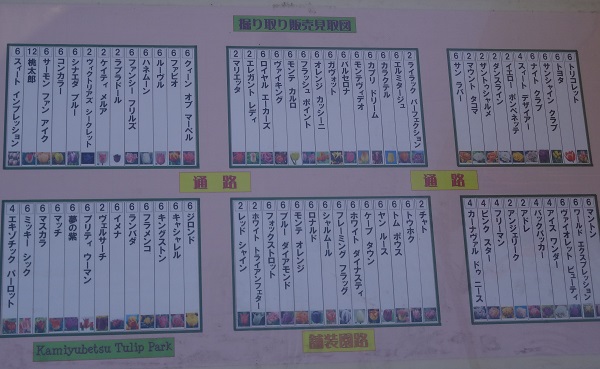 掘り取り販売見取図
6 クィーン オブ マーベル
6 ファビオ
6 ルーヴル
6 ハネムーン
6 ファンシー フリルズ
2 ラブラドール
2 ケイティ メルア
2 ヴィクトリアズ シークレット
6 シナエダ ブルー
6 コンカラー
6 サーモン ファン アイク
12 桃太郎
6 スィート インプレッション
2 ライラック パーフェクション
6 エルミタージュ
6 カラクテル
6 カプリ ドリーム
6 モンテヴィデオ
6 バルセロナ
6 ガヴォット
6 オレンジ カッシーニ
6 フラッシュ ポイント
6 モンテ カルロ
6 ヴァイキング
4 ロイヤル エーカーズ
2 エレガント レディ
2 マリエッタ
6 トリコレット
6 トヨタ
6 サンシャイン クラブ
6 ナイト クラブ
4 スィート デザイアー
2 イエロー ポンペネッテ
2 ダンスライン
2 ザントゥシャルメ
2 マウント タコマ
6 サン ラバー
通路
通路
6 ジロンド
6 キャシャレル
6 キングストン
6 フラメンコ
6 ランバダ
6 イメナ
2 ヴェルサーチ
6 プリティ ウーマン
6 夢の紫
6 マッチ
6 マスカラ
6 ミッキー シック
4 エキゾチック パーロット
2 チャト
6 トゥホク
6 トム ポウス
6 ヤン ルース
6 ケープ タウン
6 ホワイト ダイナスティ
6 フレーミング フラッグ
6 シャルムール
6 ロナルド
6 モンテ オレンジ
6 ブルー ダイアモンド
6 フォックストロット
2 ホワイト トライアンフェター
2 レッド シャイン
6 マントン
6 ワールド エクスプレッション
6 ヴァイオレット ビューティ
4 アイス ワンダー
4 バックパッカ
2 アドレ
2 アンジェリーク
2 フリーマン
4 ピンク スター
4 カーナヴァル ドゥ ニース
舗装園路
Kamiyubetsu Tulip Park